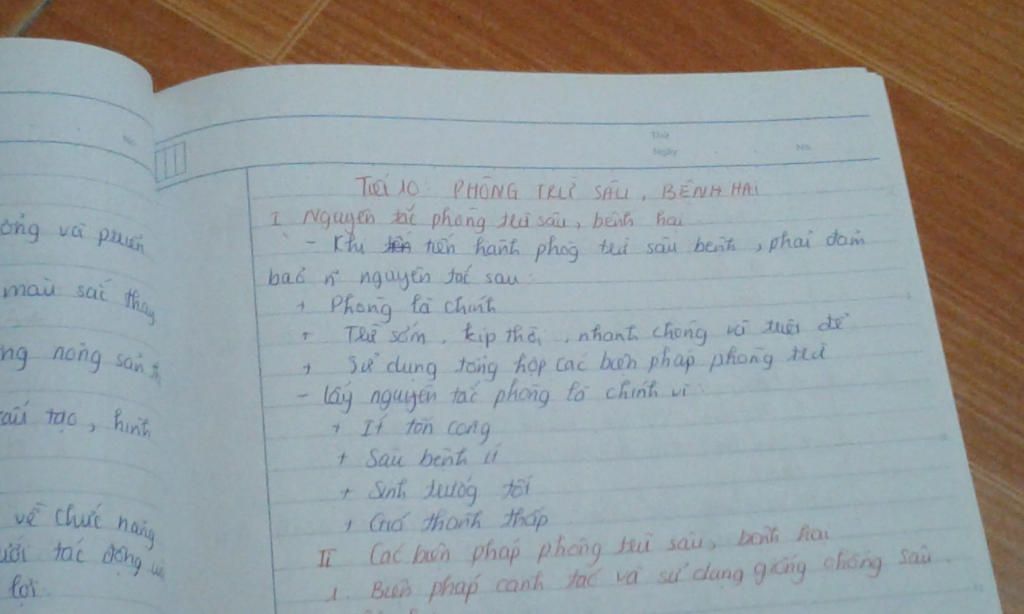 Thứ
Ngày No.
Tiết 10: PHÒNG TRỪ SÂU, BỆNH HẠI
I. Nguyên tắc phòng trừ sâu, bệnh hại
- Khi tiến hành phòg trừ sâu bệnh, phải đảm
bảo n~ nguyên tắc sau:
+ Phòng là chính
+ Trừ sớm, kịp thời, nhanh chóng và triệt để
+ Sử dụng tổng hợp các biện pháp phòng trừ
- Lấy nguyên tắc phòng là chính vì:
+ Ít tốn công
+ Sâu bệnh ít
+ Sinh trưởng tốt
+ Giá thành thấp
II Các biện pháp phòng trừ sâu, bệnh hại
1. Biện pháp canh tác và sử dụng giống chống sâu
No.
và
màu sắc thay
nông sản
tạo, hình
về chức năng
tác động
lợi.